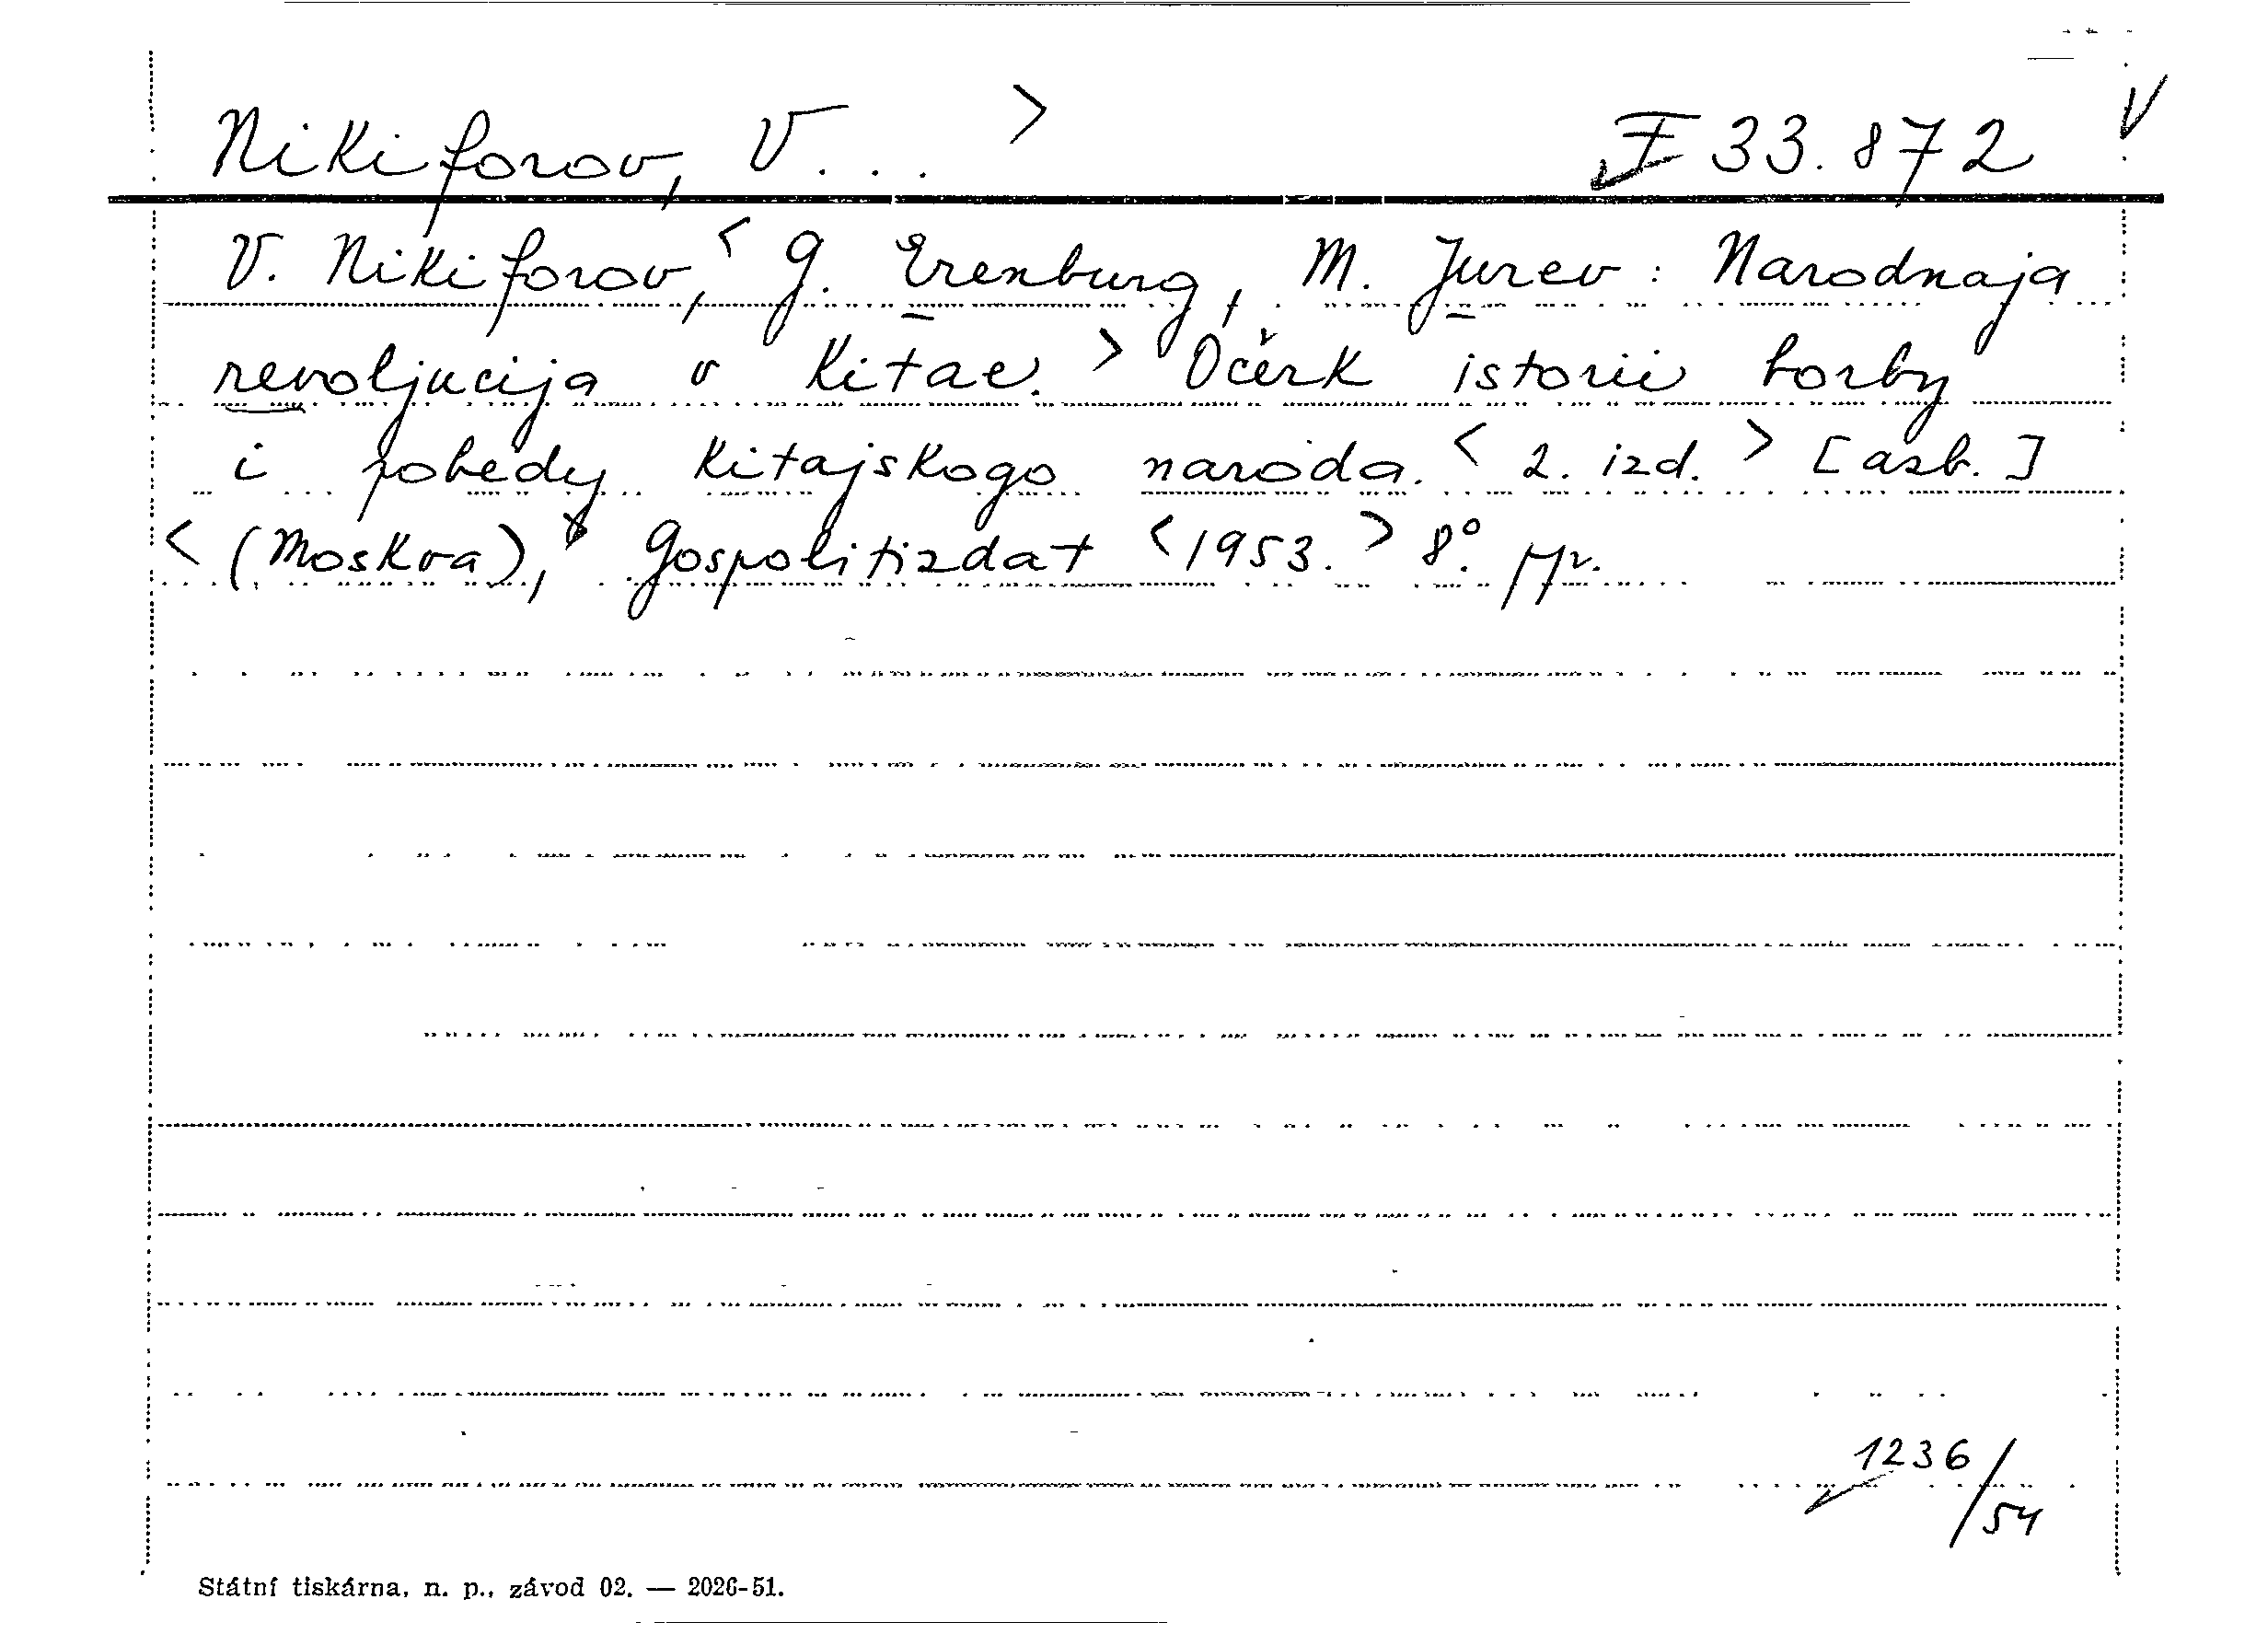 Nikiforov, V... > F 33.872 V
V. Nikiforov, < G. Erenburg, M. Jurev : Narodnaja
revoljucija v Kitae. > Očerk istorii borby
i pobedy kitajskogo naroda. < 2. izd. > [azb.]
< (Moskva), > Gospolitizdat < 1953. > 8°.
1236/54
Státní tiskárna, n. p., závod 02. — 2026-51.